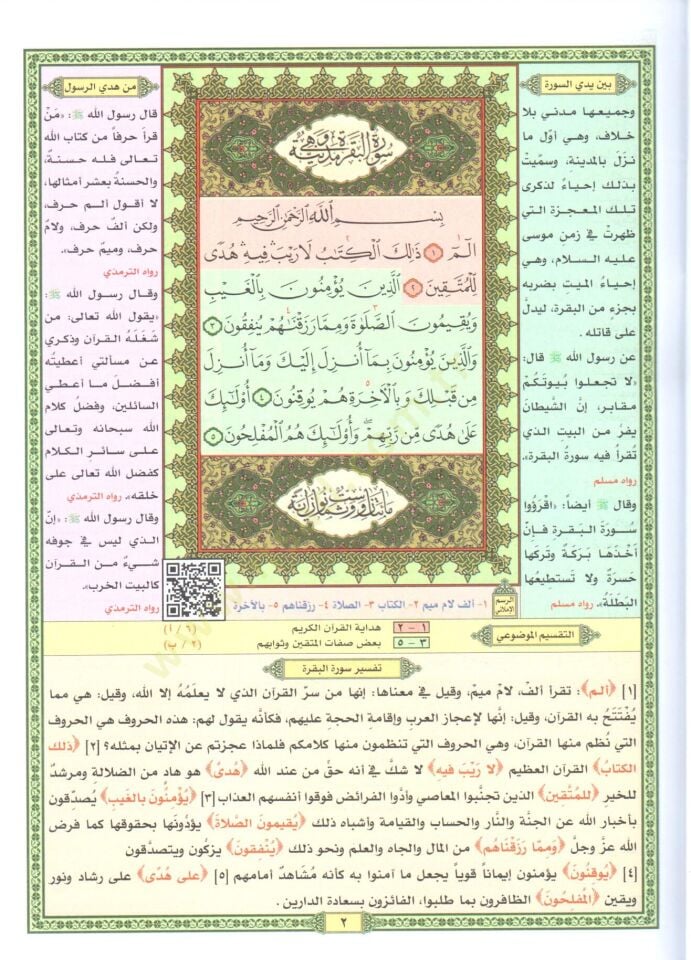 بين يدي السورة
وجميعها مدني بلا
خلاف، وهي أوّل ما
نزل بالمدينة، وسمّيت
بذلك إحياءً لذكرى
تلك المعجزة التي
ظهرتْ في زمن موسى
عليه السلام، وهي
إحياءُ الميت بضربه
بجزء من البقرة، ليدلَّ
على قاتله.
عن رسول الله ﷺ قال:
«لا تجعلوا بُيوتَكُمْ
مقابر، إنَّ الشَّيطانَ
يفرّ من البيت الذي
تُقرأ فيه سورةُ البقرة».
رواه مسلم
وقال ﷺ أيضاً: «اقْرَؤُوا
سُورَةَ البَـقَـرة فـإنَّ
أخْذَهَا بَرَكَةٌ وتَركَها
حَسرَةٌ ولا تَستطيعُها
البَطَلَةُ». رواه مسلم
سورة البقرة وهي مدنية
بِسْمِ اللَّهِ الرَّحْمَنِ الرَّحِيمِ
الٓمٓ ١ ذَٰلِكَ الْكِتَٰبُ لَا رَيْبَ ۛ فِيهِ ۛ هُدًى
لِّلْمُتَّقِينَ ٢ الَّذِينَ يُؤْمِنُونَ بِالْغَيْبِ
وَيُقِيمُونَ الصَّلَوٰةَ وَمِمَّا رَزَقْنَٰهُمْ يُنفِقُونَ ٣
وَالَّذِينَ يُؤْمِنُونَ بِمَآ أُنزِلَ إِلَيْكَ وَمَآ أُنزِلَ
مِن قَبْلِكَ وَبِالْآخِرَةِ هُمْ يُوقِنُونَ ٤ أُوْلَٰٓئِكَ
عَلَىٰ هُدًى مِّن رَّبِّهِمْ ۖ وَأُوْلَٰٓئِكَ هُمُ الْمُفْلِحُونَ ٥
الرسم الإملائي
١- ألف لام ميم ٢- الكتاب ٣- الصلاة ٤- رزقناهم ٥- بالآخرة
من هدي الرسول
قال رسول الله ﷺ: «مَنْ
قرأ حرفاً من كتاب الله
تعالى فله حسنةٌ،
والحسنةُ بعشر أمثالها،
لا أقول ألم حرف،
ولكن ألفٌ حرف، ولامٌ
حرف، وميمٌ حرف».
رواه الترمذي
وقـال رسـول الله ﷺ:
«يقول الله تعالى: من
شَغَلَهُ القرآن وذكري
عن مسألتي أعطيتُه
أفضـلَ مـا أعطي
السائلين، وفضلُ كلام
الله سبحانه وتعالى
على سـائر الـكـلام
كفضل الله تعالى على
خلقه». رواه الترمذي
وقال رسول الله ﷺ: «إنّ
الذي ليس في جوفه
شيءٌ مـن القـرآن
كالبيت الخرب».
رواه الترمذي
التقسيم الموضوعي
١ - ٢ هداية القرآن الكريم (٦ / أ)
٣ - ٥ بعض صفات المتقين وثوابهم (٢ / ب)
تفسير سورة البقرة
[١] ﴿ألم﴾: تقرأ ألفْ، لامْ ميمْ، وقيل في معناها: إنها من سرّ القرآن الذي لا يعلَمُهُ إلا الله، وقيل: هي مما
يُفْتَتَحُ به القرآن، وقيل: إنَّها لإعجاز العربِ وإقامةِ الحجة عليهم، فكأنَّه يقول لهم: هذه الحروف هي الحروف
التي نُظم منها القرآن، وهي الحروف التي تنظمون منها كلامكم فلماذا عجزتم عن الإتيان بمثله؟ [٢] ﴿ذلك
الكتابُ﴾ القرآن العظيم ﴿لا رَيْبَ فيه﴾ لا شكَّ في أنه حقٌّ من عند الله ﴿هُدىً﴾ هو هادٍ من الضلالةِ ومرشدٌ
للخير ﴿للمُتَّقين﴾ الذين تجنَّبوا المعاصي وأدُّوا الفرائضَ فوقوا أنفسهم العذاب [٣] ﴿يُؤْمنُونَ بالغَيب﴾ يُصدّقون
بأخبار الله عن الجنَّة والنَّار والحساب والقيامة وأشباه ذلك ﴿يُقيمونَ الصَّلاةَ﴾ يؤدُّونَها بحقوقها كما فرض
الله عزَّ وجلَّ ﴿وَممَّا رَزَقْناهُم﴾ من المال والجاه والعلم ونحو ذلك ﴿يُنْفِقونَ﴾ يزكّون ويتصدَّقون
[٤] ﴿يُوقنُونَ﴾ يؤمنون إيماناً قوياً يجعل ما آمنوا به كأنه مُشاهَدٌ أمامهم [٥] ﴿على هُدًى﴾ على رشاد ونور
ويقين ﴿المُفلحُونَ﴾ الظافرون بما طلبوا، الفائزون بسعادة الدارين.
٢